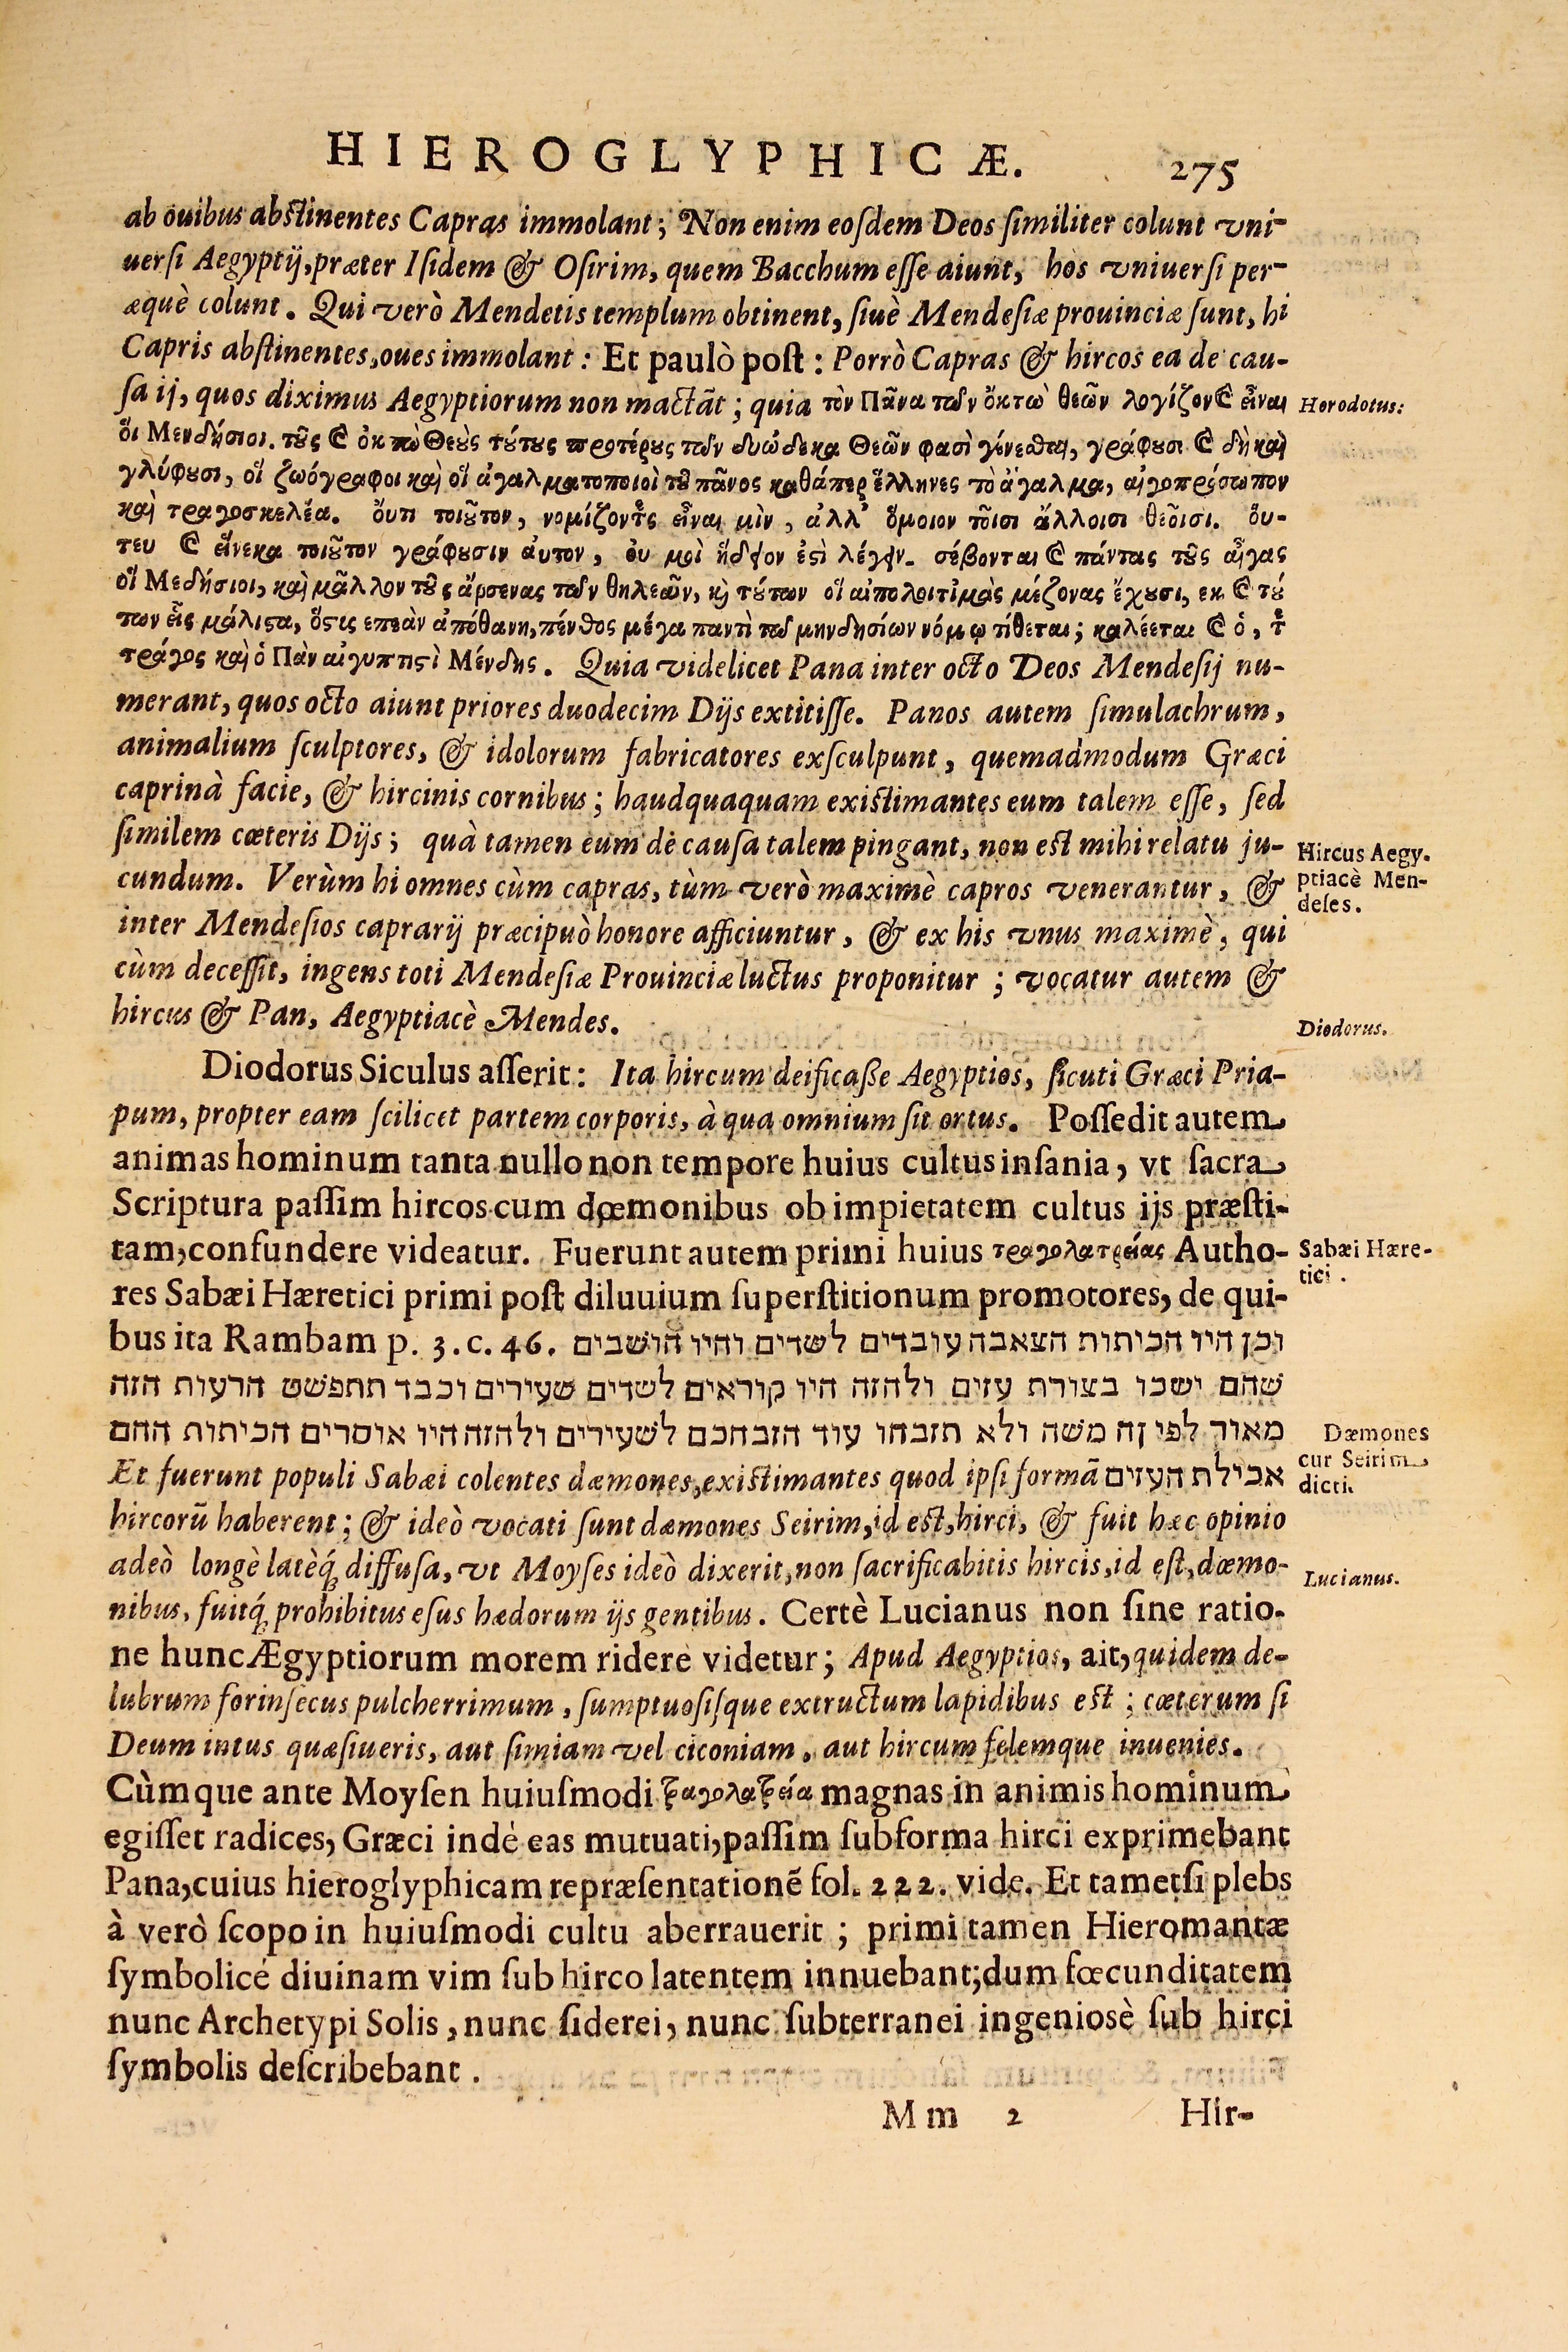 HIEROGLYPHICÆ. 275
ab ouibus abstinentes Capras immolant; Non enim eosdem Deos similiter colunt vni-
uersi Aegyptij, præter Isidem & Osirim, quem Bacchum esse aiunt, hos vniuersi per-
æquè colunt. Qui verò Mendetis templum obtinent, siuè Mendesiæ prouinciæ sunt, hi
Capris abstinentes, oues immolant: Et paulò post: Porrò Capras & hircos ea de cau-
sa ij, quos diximus Aegyptiorum non mactāt; quia τὸν Πᾶνα τῶν ὄκτω θεῶν λογίζον εἶναι
Herodotus:
ὅι Μενδήσιοι. τοῦς ὀκτὼ Θεοὺς τούτους προτέρους τῶν δυώδεκα Θεῶν φασὶ γένεσθαι, γράφουσι δὴ καὶ
γλύφουσι, οἵ ζωόγραφοι καὶ οἵ ἀγαλματοποιοὶ τοῦ πᾶνος καθάπερ ἕλληνες τὸ ἄγαλμα, αἰγοπρόσωπον
καὶ τραγοσκελέα. ὄυτι τοιοῦτον, νομίζοντες εἶναι μὶν, ἀλλ' ὅμοιον τοῖσι ἄλλοισι θεοῖσι. ὅυ-
τευ εἵνεκα τοιοῦτον γράφουσιν ἀυτον, ὀυ μοὶ ἥδιον ἐστὶ λέγειν. σέβονται πάντας τοῦς αἶγας
οἵ Μεδήσιοι, καὶ μᾶλλον τοῦς ἄρσενας τῶν θηλεῶν, καὶ τούτων οἵ αἰπολοι τιμὰς μέζονας ἔχουσι, εκ τού
των εἷς μάλιστα, ὅστις επεὰν ἀποθανη, πένθος μέγα παντὶ τῶ μηνδησίων νόμῳ τίθεται; καλέεται ὁ, τε
τράγος καὶ ὁ Πὰν αἰγυπτιστὶ Μένδης. Quia videlicet Pana inter octo Deos Mendesij nu-
merant, quos octo aiunt priores duodecim Dijs extitisse. Panos autem simulachrum,
animalium sculptores, & idolorum fabricatores exsculpunt, quemadmodum Græci
caprinà facie, & hircinis cornibus; haudquaquam existimantes eum talem esse, sed
similem cæteris Dijs; quà tamen eum de causa talem pingant, non est mihi relatu ju-
cundum. Verùm hi omnes cùm capras, tùm verò maximè capros venerantur, &
Hircus Aegy-
ptiacè Men-
deses.
inter Mendesios caprarij præcipuò honore afficiuntur, & ex his vnus maximè, qui
cùm decessit, ingens toti Mendesiæ Prouinciæ luctus proponitur; vocatur autem &
hircus & Pan, Aegyptiacè Mendes.
Diodorus.
Diodorus Siculus asserit: Ita hircum deificaße Aegyptios, sicuti Græci Pria-
pum, propter eam scilicet partem corporis, à qua omnium sit ortus. Possedit autem
animas hominum tanta nullo non tempore huius cultus insania, vt sacra
Scriptura passim hircos cum dœmonibus ob impietatem cultus ijs præsti-
tam, confundere videatur. Fuerunt autem primi huius τραγολατρείας Autho-
Sabæi Hære-
tici.
res Sabæi Hæretici primi post diluuium superstitionum promotores, de qui-
bus ita Rambam p. 3. c. 46. וכן היו הכיתות הצאבה עובדים לשדים והיו הושבים
שהם ישכו בצורת עזים ולהזה היו קוראים לשדים שעירים וכבד תתפשט הרעות הזה
מאור לפי זה משה ולא תזבחו עוד הזבחכם לשעירים ולהזה היו אוסרים הכיתות ההם
Dæmones
cur Seirim
dicti.
אכילת העזים Et fuerunt populi Sabæi colentes dæmones, existimantes quod ipsi formā
hircorū haberent; & ideò vocati sunt dæmones Seirim, id est, hirci, & fuit hæc opinio
adeò longè latèq́; diffusa, vt Moyses ideò dixerit, non sacrificabitis hircis, id est, dœmo-
Lucianus.
nibus, fuitq́; prohibitus esus hædorum ijs gentibus. Certè Lucianus non sine ratio-
ne hunc Ægyptiorum morem ridere videtur; Apud Aegyptios, ait, quidem de-
lubrum forinsecus pulcherrimum, sumptuosisque extructum lapidibus est; cæterum si
Deum intus quæsiueris, aut simiam vel ciconiam, aut hircum felemque inuenies.
Cùmque ante Moysen huiusmodi τραγολατρεία magnas in animis hominum
egisset radices, Græci indè eas mutuati, passim sub forma hirci exprimebant
Pana, cuius hieroglyphicam repræsentationē fol. 222. vide. Et tametsi plebs
à verò scopo in huiusmodi cultu aberrauerit; primi tamen Hieromantæ
symbolicé diuinam vim sub hirco latentem innuebant; dum fœcunditatem
nunc Archetypi Solis, nunc siderei, nunc subterranei ingeniosè sub hirci
symbolis describebant.
Mm 2 Hir-